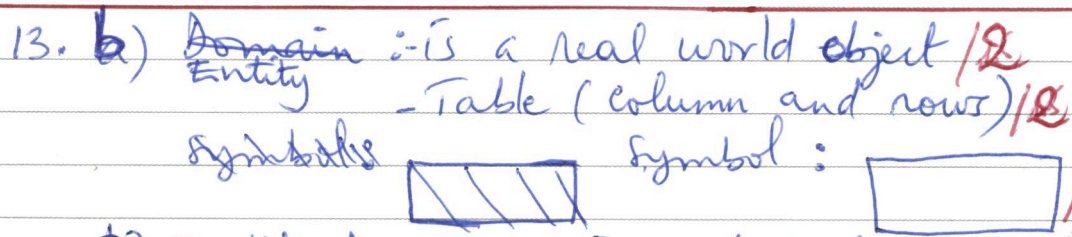 13. b) Domain :- is a real world object /2
Entity
- Table (column and rows) /2
Symbol :